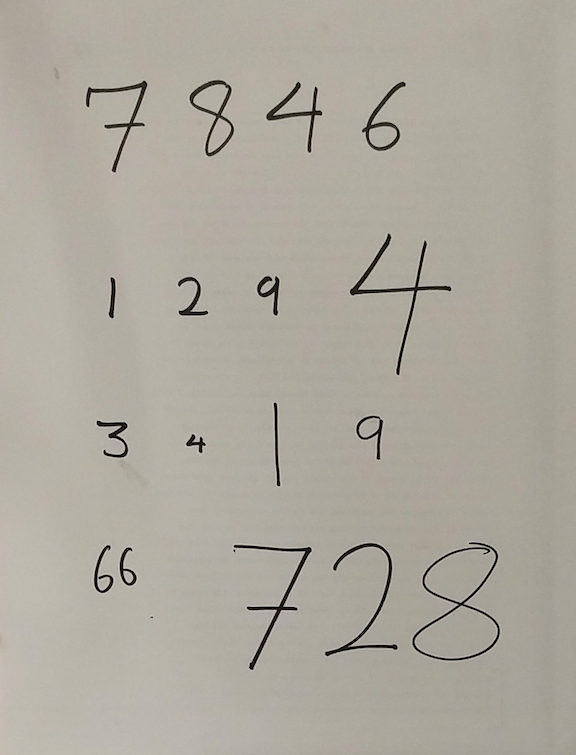 7 8 4 6
1 2 9 4
3 4 1 9
66 728